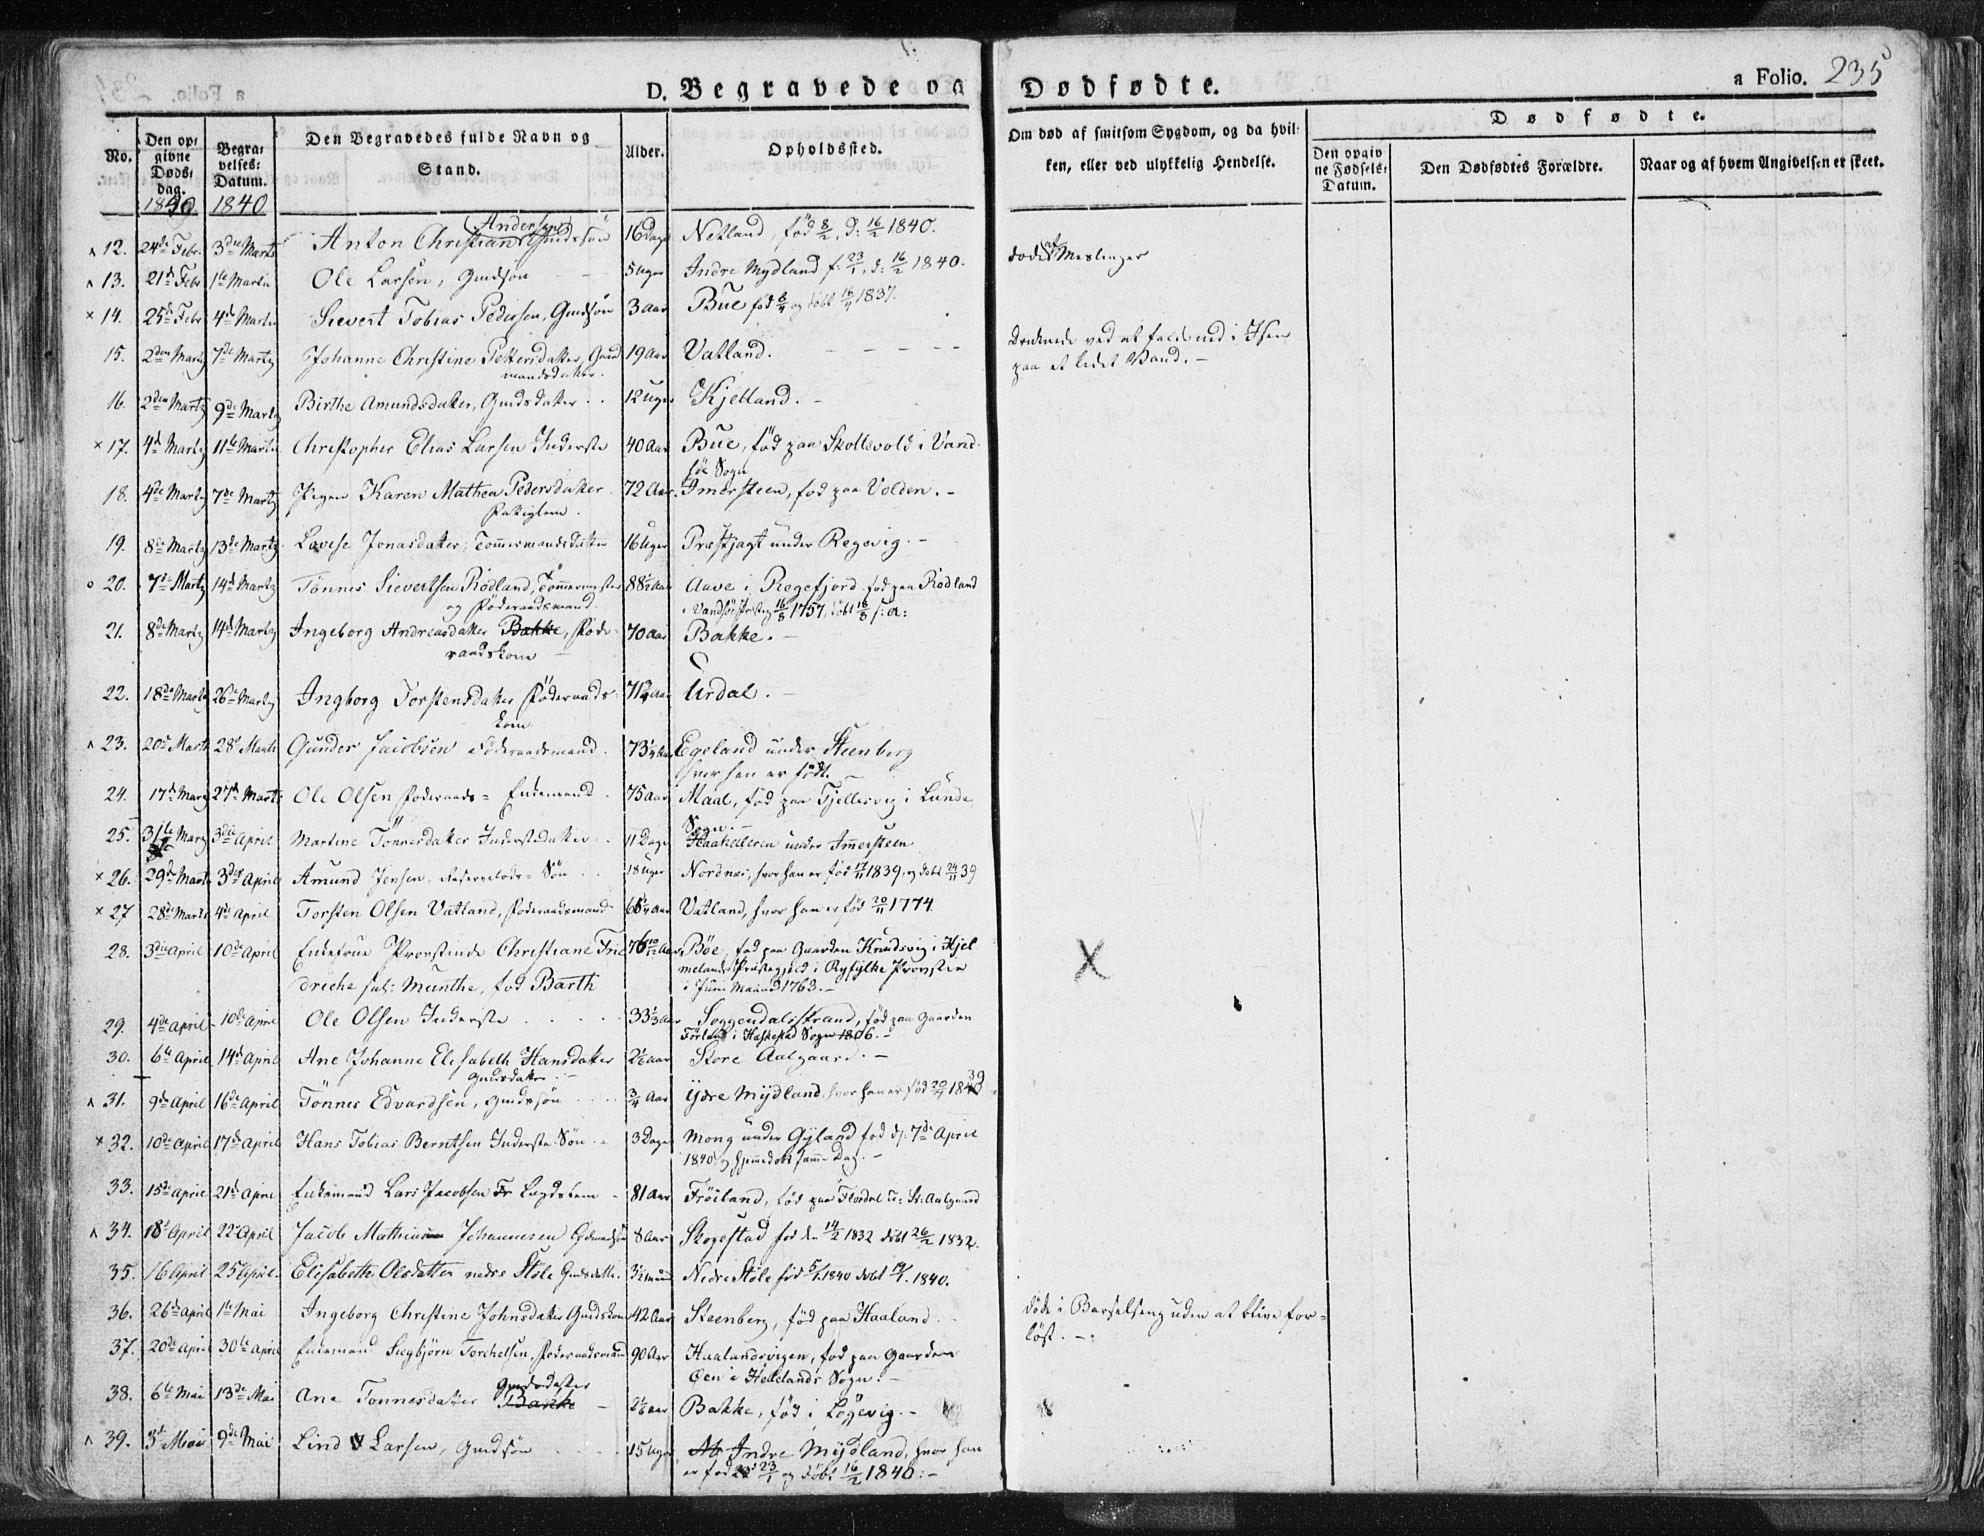 D. Begravede og Dødfødte.
a Folio. 235
No.
Den opgivne Dødsdag.
Begravelses-Datum.
Den Begravedes fulde Navn og Stand.
Alder.
Opholdssted.
Om død af smitsom Sygdom, og da hvilken, eller ved ulykkelig Hendelse.
Dødfødte.
Den opgivne Fødsels-Datum.
Den Dødfødtes Forældre.
Naar og af hvem Angivelsen er skeet.
1840 1840
12. 24de Febr. 3die Marts Anton Christian Andersen Gmdssøn 16 Dage Netland, fød 8/2, d: 16/2 1840.
døde af Meslinger
13. 21de Febr 1te Martii Ole Larsen, Gmdsøn 5 Uger Indre Mydland f: 23/1, d: 16/2 1840.
14. 25de Febr 4de Martii Sievert Tobias Pedersen, Gmdsøn 3 Aar Bue fød 8/4 og døbt 16/4 1837.
15. 2den Marty 7de Marty Johanne Christine Pettersdatter, Gaardmandsdatter. 19 Aar Vatland.
Druknede ved at falde ned i Isen
paa et lidet Vand.
16. 2den Marty 9de Marty Birthe Amundsdatter, Gmdsdatter 12 Uger Kjelland.
17. 4de Marty 11te Martii Christopher Elias Larsen Inderste 40 Aar Bue, fød paa Skollevold i Vandsøe Sogn
18. 4de Marty 7de Marty Pigen Karen Mathea Pedersdatter 72 Aar. Imersteen, fød paa Volden.
19. 8de Marty 13de Marty Lovise Jonasdatter, Tømmermandsdatter 16 Uger Præstjagt under Regevig.
20. 7de Marty 14de Marty Tønnes Sievertsen Rødland, Tømmermester
og Føderaadsmand. 88½ Aar Aave i Regefjord fød paa Rødland
i Vandsøe 1757, døbt s: A:
21. 8de Marty 14de Marty Ingeborg Andreasdatter Bakke, Føderaadskone 70 Aar Bakke.
22. 18de Marty 26de Marty Ingborg Torstensdatter Føderaadskone 71¾ Aar Urdal.
23. 20de Marti 28de Marti Gunder Jacobsen Føderaadsmand. 73¼ Aar Egeland under Steenberg
hvor han er født.
24. 17de Marty 27de Marti Ole Olsen Føderaads- Enkemand 75 Aar Maal, fød paa Tjellesvig i Lunde
Sogn.
25. 31te Marty 3die April Martine Tønnesdatter Inderstedatter 11 Dage Haakelleren under Immersteen
26. 29de Marty 3die April Amund Jensen, Søn 18 Uger Nordnæs, hvor han er fød 17/11 1839, og døbt 24/11 39
27 28de Marti 4de April Torsten Olsen Vatland, Føderaadsmand 65¼ Aar Vatland, hvor han er fød 20/11 1774.
28. 3die April 10de April Enkefrue Provstinde Christiane Friedriche sal: Munthe, fød Barth 76 10/12 Aar Bøe, fød paa Gaarden Knudsvig i Hjelmelands Præstegjeld i Ryfylke Provstie
i Juni Maaned 1763.
29. 4de April 10de April Ole Olsen Inderste 33⅓ Aar Soggendalsstrand, fød paa Gaarden
i Hæskestad Sogn 1806.
30. 6te April 14de April Ane Johanne Elisabeth Hansdatter
Gmdsdatter 2⅙ Aar Store Aalgaard.
31. 9de April 16de April Tønnes Edvardsen, Gmdssøn ¾ Aar Ydre Mydland, hvor han er fød 1839
32. 10de April 17de April Hans Tobias Berntsen Inderste-Søn 3 Dage Mong under Gyland fød d. 7de April
1840 og hjemmedøbt samme Dag.
33. 15de April 21de April Enkemand Lars Jacobsen Fr Lægdslem 81 Aar Frøiland, fød paa Flordal u: St: Aalgaard
34. 18de April 22de April Jacob Mathias Johannesen Gdmandsøn 8 Aar Skogestad fød den 14/2 1832 døbt 26/2 1832.
35. 16 April 25 April. Elisabeth Olsdatter nedre Støle Gmdsdatter 3½ Maaned Nedre Støle fød 5/1 1840 døbt 19/1 1840.
36. 26de April 1te Mai Ingeborg Christine Johnsdatter Gmdskone 42 Aar Steenberg, fød paa Haaland.
døde i Barselseng uden at blive forløst.
37. 20de April 30te April Enkemand Siegbjørn Torchelsen, Føderaadsmand 90 Aar Haalandsvigen, fød paa Gaarden
Øen i Hetlands Sogn.
38. 6te Mai 13de Mai Ane Tønnesdatter Bakke Gmdsdatter 2⅙ Aar Bakke, fød i Løgevig.
39. 3de Mai 9de Mai Lind Larsen, Gmdsøn 15 Uger Indre Mydland, hvor han
er fød 23/1 og døbt 16/2 1840.